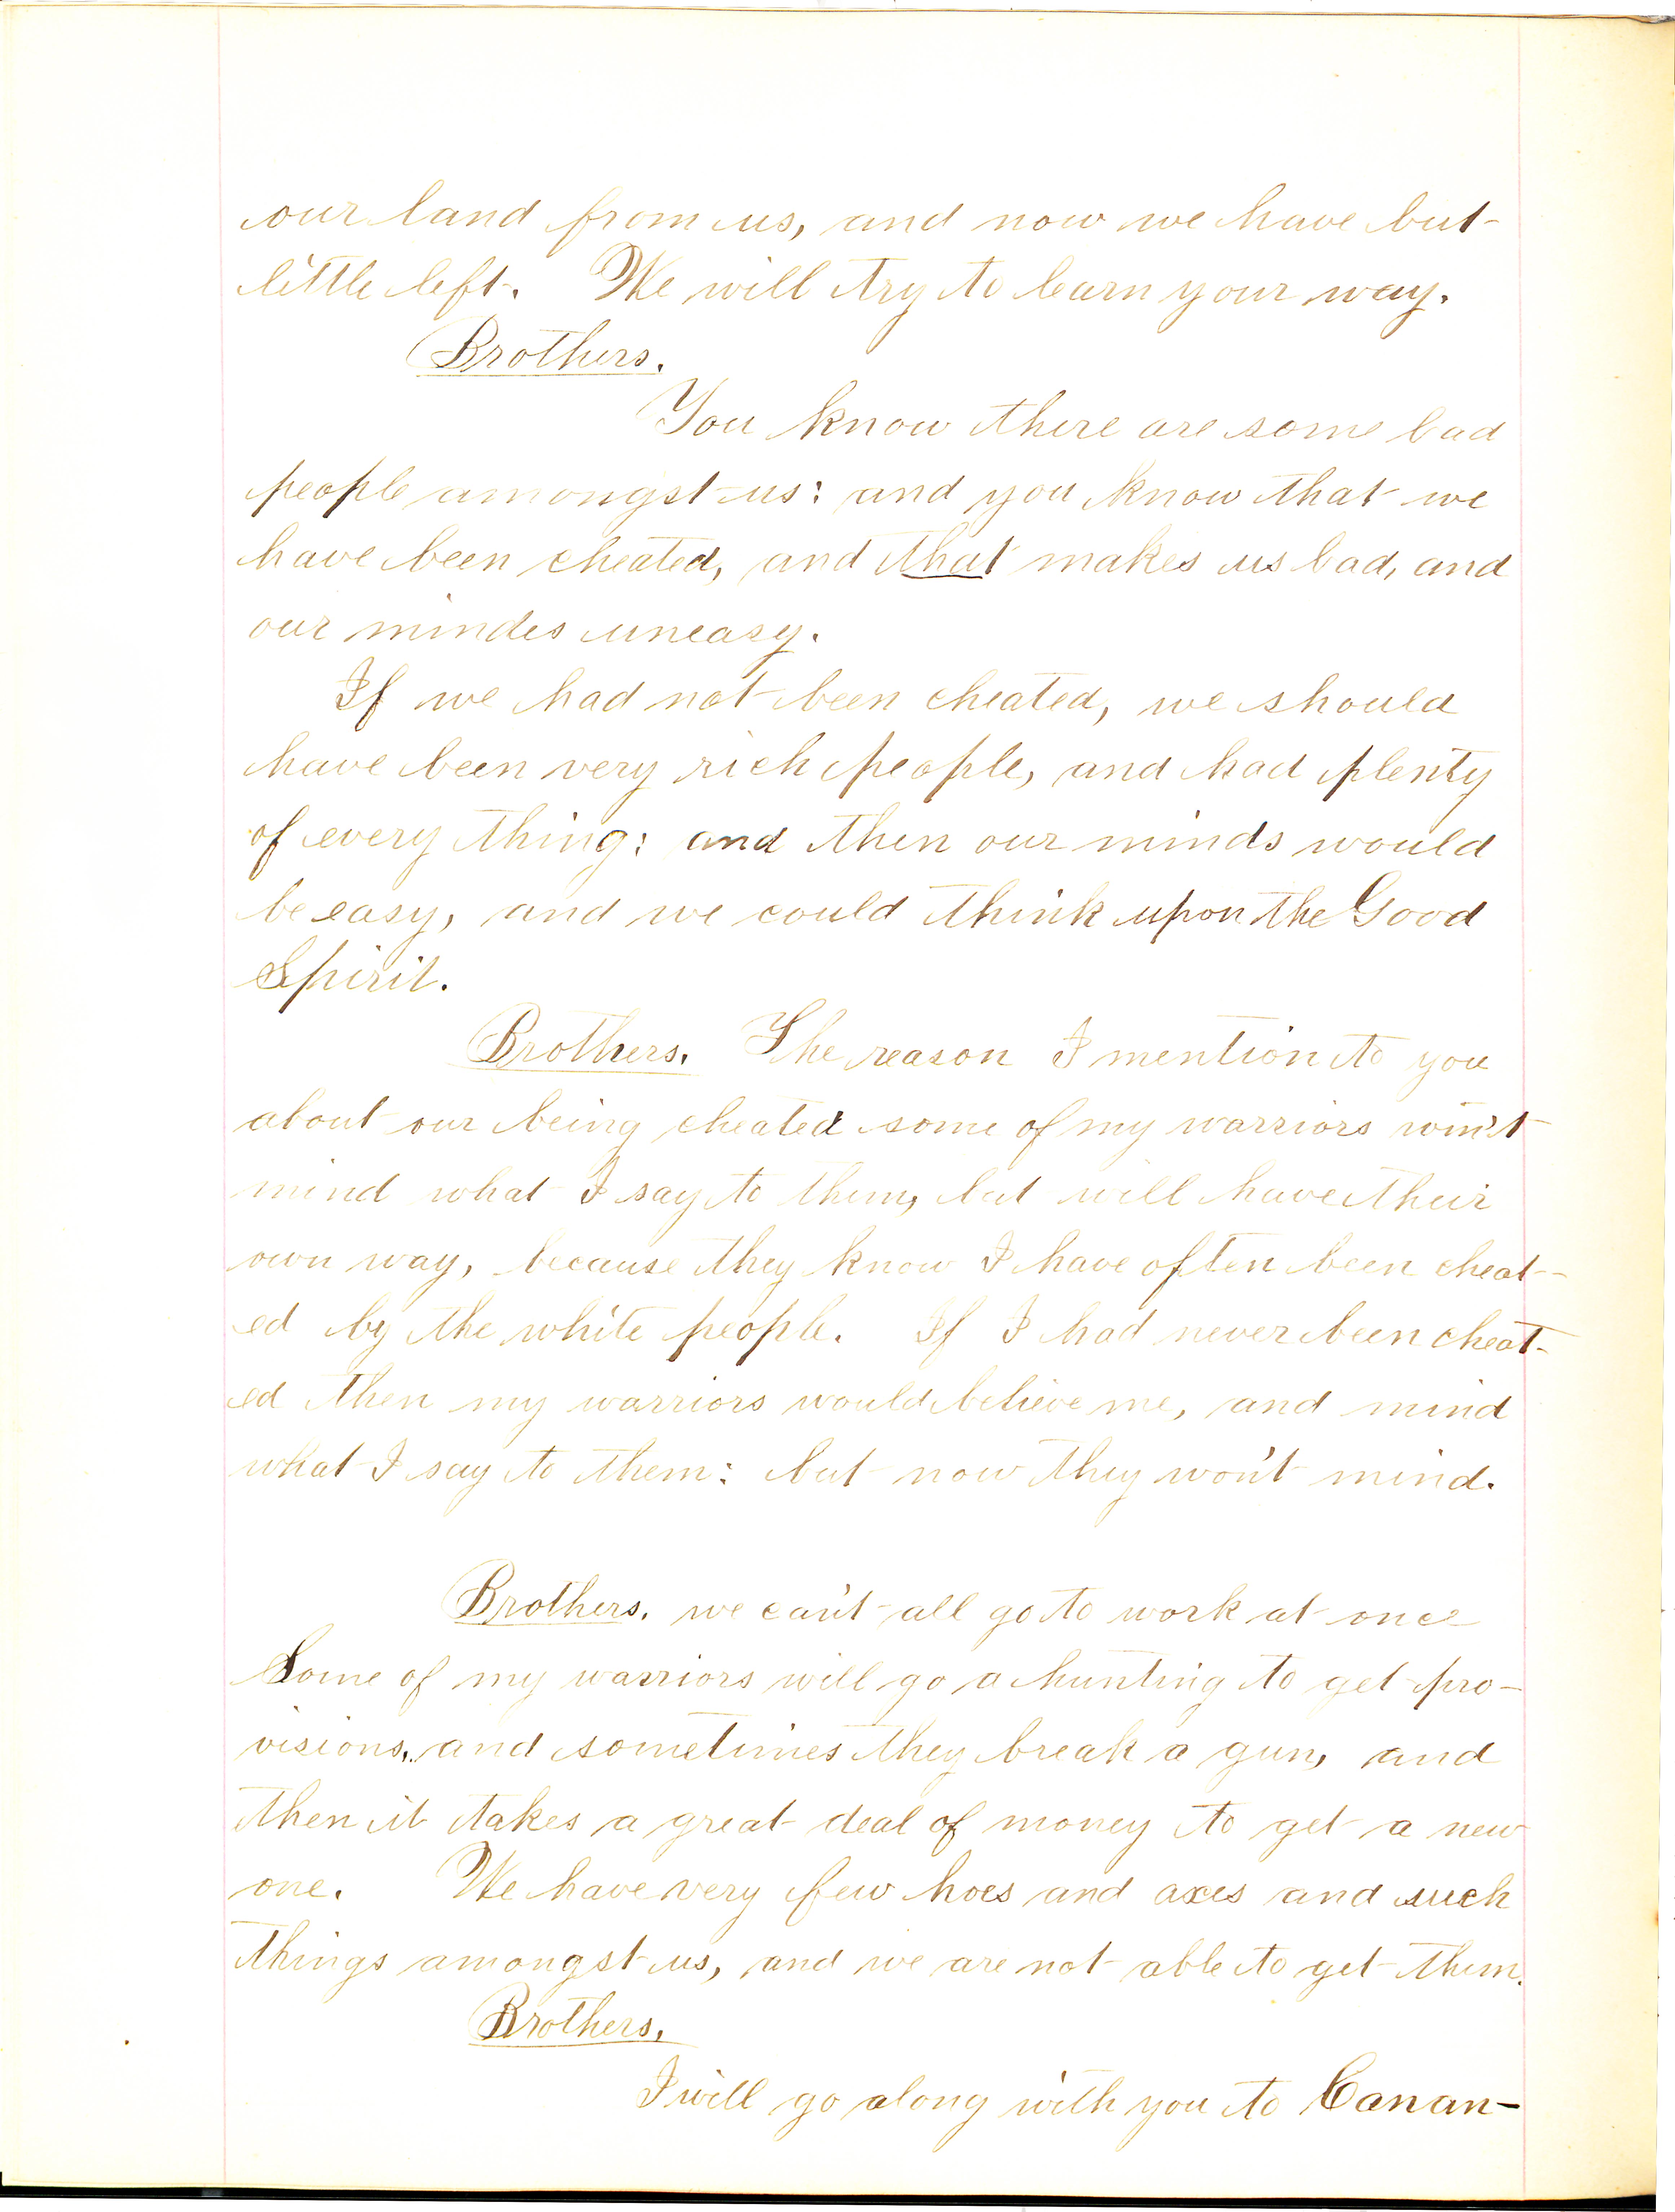 our land from us, and now we have but
little left. We will try to learn your way.
Brothers.
You know there are some bad
people amongst us: and you know that we
have been cheated, and that makes us bad, and
our mindes uneasy.
If we had not been cheated, we should
have been very rich people, and had plenty
of every thing: and then our minds would
be easy, and we could think upon the Good
Spirit.
Brothers. The reason I mention to you
about our being cheated some of my warriors won't
mind what I say to them, but will have their
own way, because they know I have often been cheat-
ed by the white people. If I had never been cheat-
ed then my warriors would believe me, and mind
what I say to them: but now they won't mind.
Brothers. we can't all go to work at once
Some of my warriors will go a hunting to get pro-
visions, and sometimes they break a gun, and
then it takes a great deal of money to get a new
one. We have very few hoes and axes and such
things amongst us, and we are not able to get them.
Brothers,
I will go along with you to Canan-